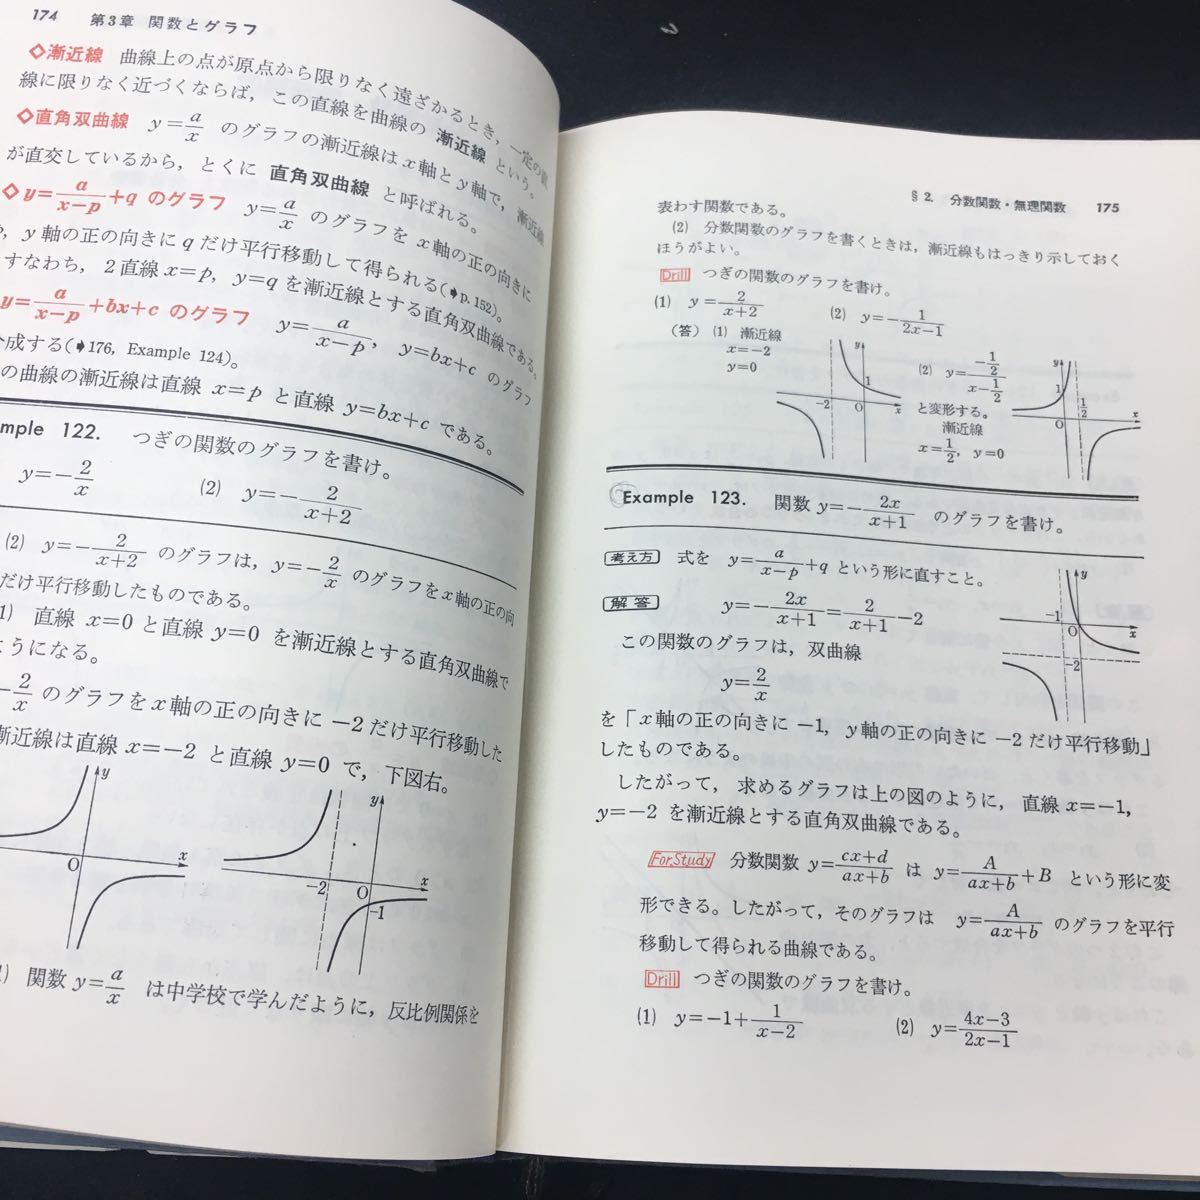 174 第3章 関数とグラフ
◇漸近線 曲線上の点が原点から限りなく遠ざかるとき，一定の直
線に限りなく近づくならば，この直線を曲線の 漸近線 という。
◇直角双曲線 y=a/x のグラフの漸近線はx軸とy軸で，漸近線
が直交しているから，とくに 直角双曲線 と呼ばれる。
◇y=a/(x-p)+q のグラフ y=a/x のグラフをx軸の正の向きに
p，y軸の正の向きにqだけ平行移動して得られる(p.152)。
すなわち，2直線x=p，y=qを漸近線とする直角双曲線である。
y=a/(x-p)+bx+c のグラフ y=a/(x-p)，y=bx+c のグラフ
合成する(176, Example 124)。
の曲線の漸近線は直線 x=p と直線 y=bx+c である。
mple 122. つぎの関数のグラフを書け。
y=-2/x (2) y=-2/(x+2)
(2) y=-2/(x+2) のグラフは，y=-2/x のグラフをx軸の正の向
だけ平行移動したものである。
1) 直線 x=0 と直線 y=0 を漸近線とする直角双曲線で
ようになる。
-2/x のグラフをx軸の正の向きに -2だけ平行移動した
漸近線は直線 x=-2 と直線 y=0 で，下図右。
y
O
x
y
-2
O
-1
x
) 関数 y=a/x は中学校で学んだように，反比例関係を
§2. 分数関数・無理関数 175
表わす関数である。
(2) 分数関数のグラフを書くときは，漸近線もはっきり示しておく
ほうがよい。
Drill つぎの関数のグラフを書け。
(1) y=2/(x+2) (2) y=-1/(2x-1)
(答) (1) 漸近線
x=-2
y=0
y
1
-2
O
x
(2) y=(-1/2)/(x-1/2)
と変形する。
漸近線
x=1/2, y=0
y
1
O
1/2
x
Example 123. 関数 y=-2x/(x+1) のグラフを書け。
考え方 式を y=a/(x-p)+q という形に直すこと。
解答 y=-2x/(x+1)=2/(x+1)-2
この関数のグラフは，双曲線
y=2/x
y
-1
O
x
-2
を「x軸の正の向きに -1，y軸の正の向きに -2だけ平行移動」
したものである。
したがって，求めるグラフは上の図のように，直線x=-1,
y=-2 を漸近線とする直角双曲線である。
For.Study 分数関数 y=(cx+d)/(ax+b) は y=A/(ax+b)+B という形に変
形できる。したがって，そのグラフは y=A/(ax+b) のグラフを平行
移動して得られる曲線である。
Drill つぎの関数のグラフを書け。
(1) y=-1+1/(x-2) (2) y=(4x-3)/(2x-1)